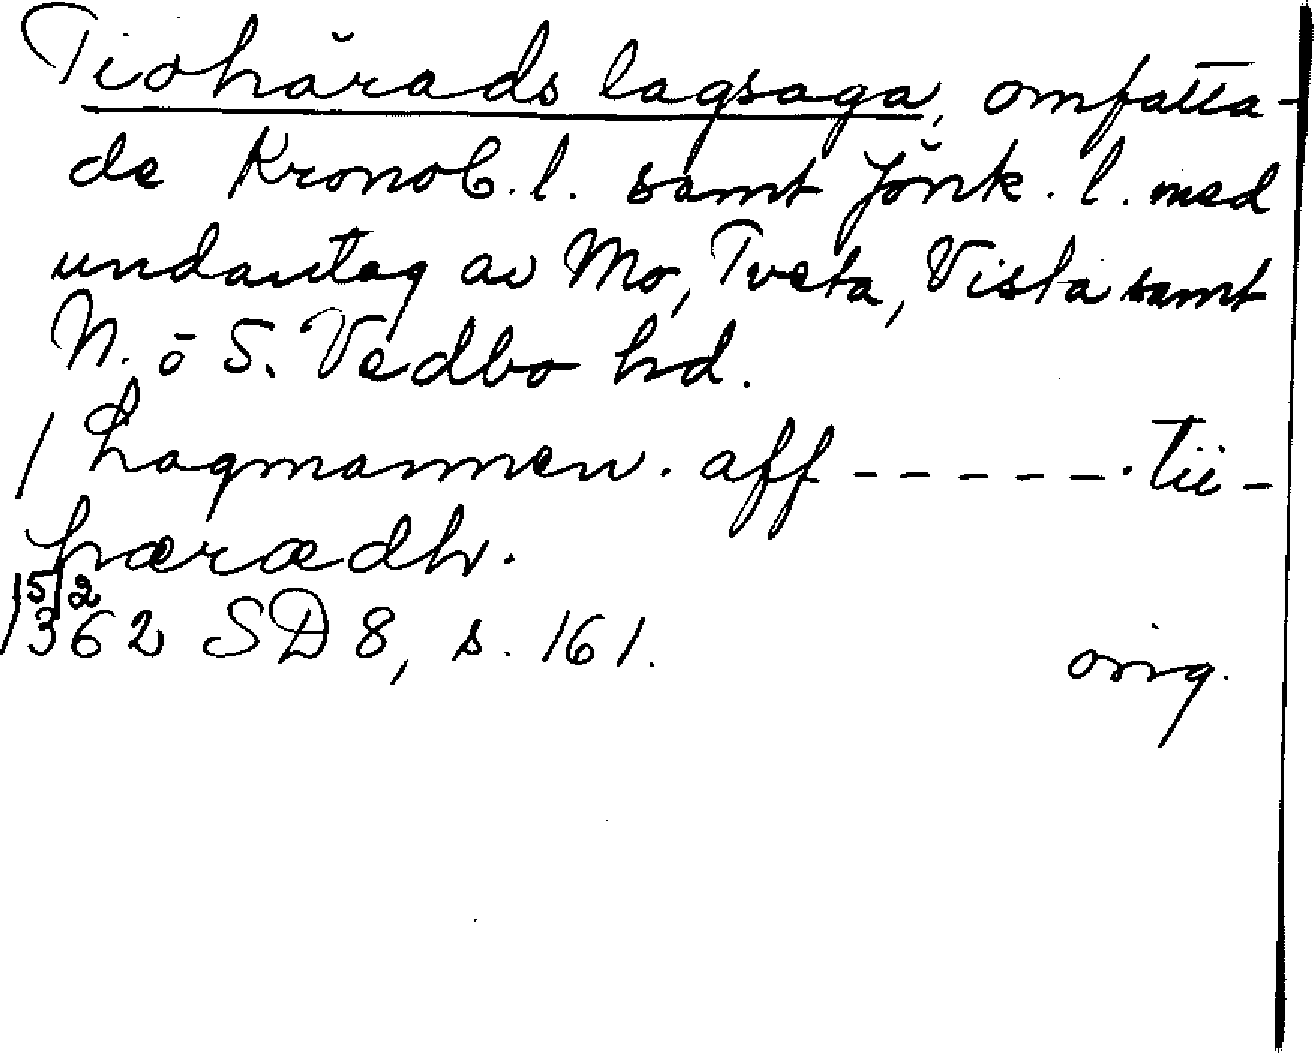 Tiohärads lagsaga, omfatta-
de Kronob. l. samt Jönk. l. med
undantag av Mo, Tveta, Vista samt
N. o S. Vedbo hd.
/ Lagmannen. aff - - - - - . tii-
hæradh.
15/2
1362 SD 8, s. 161.
orig.